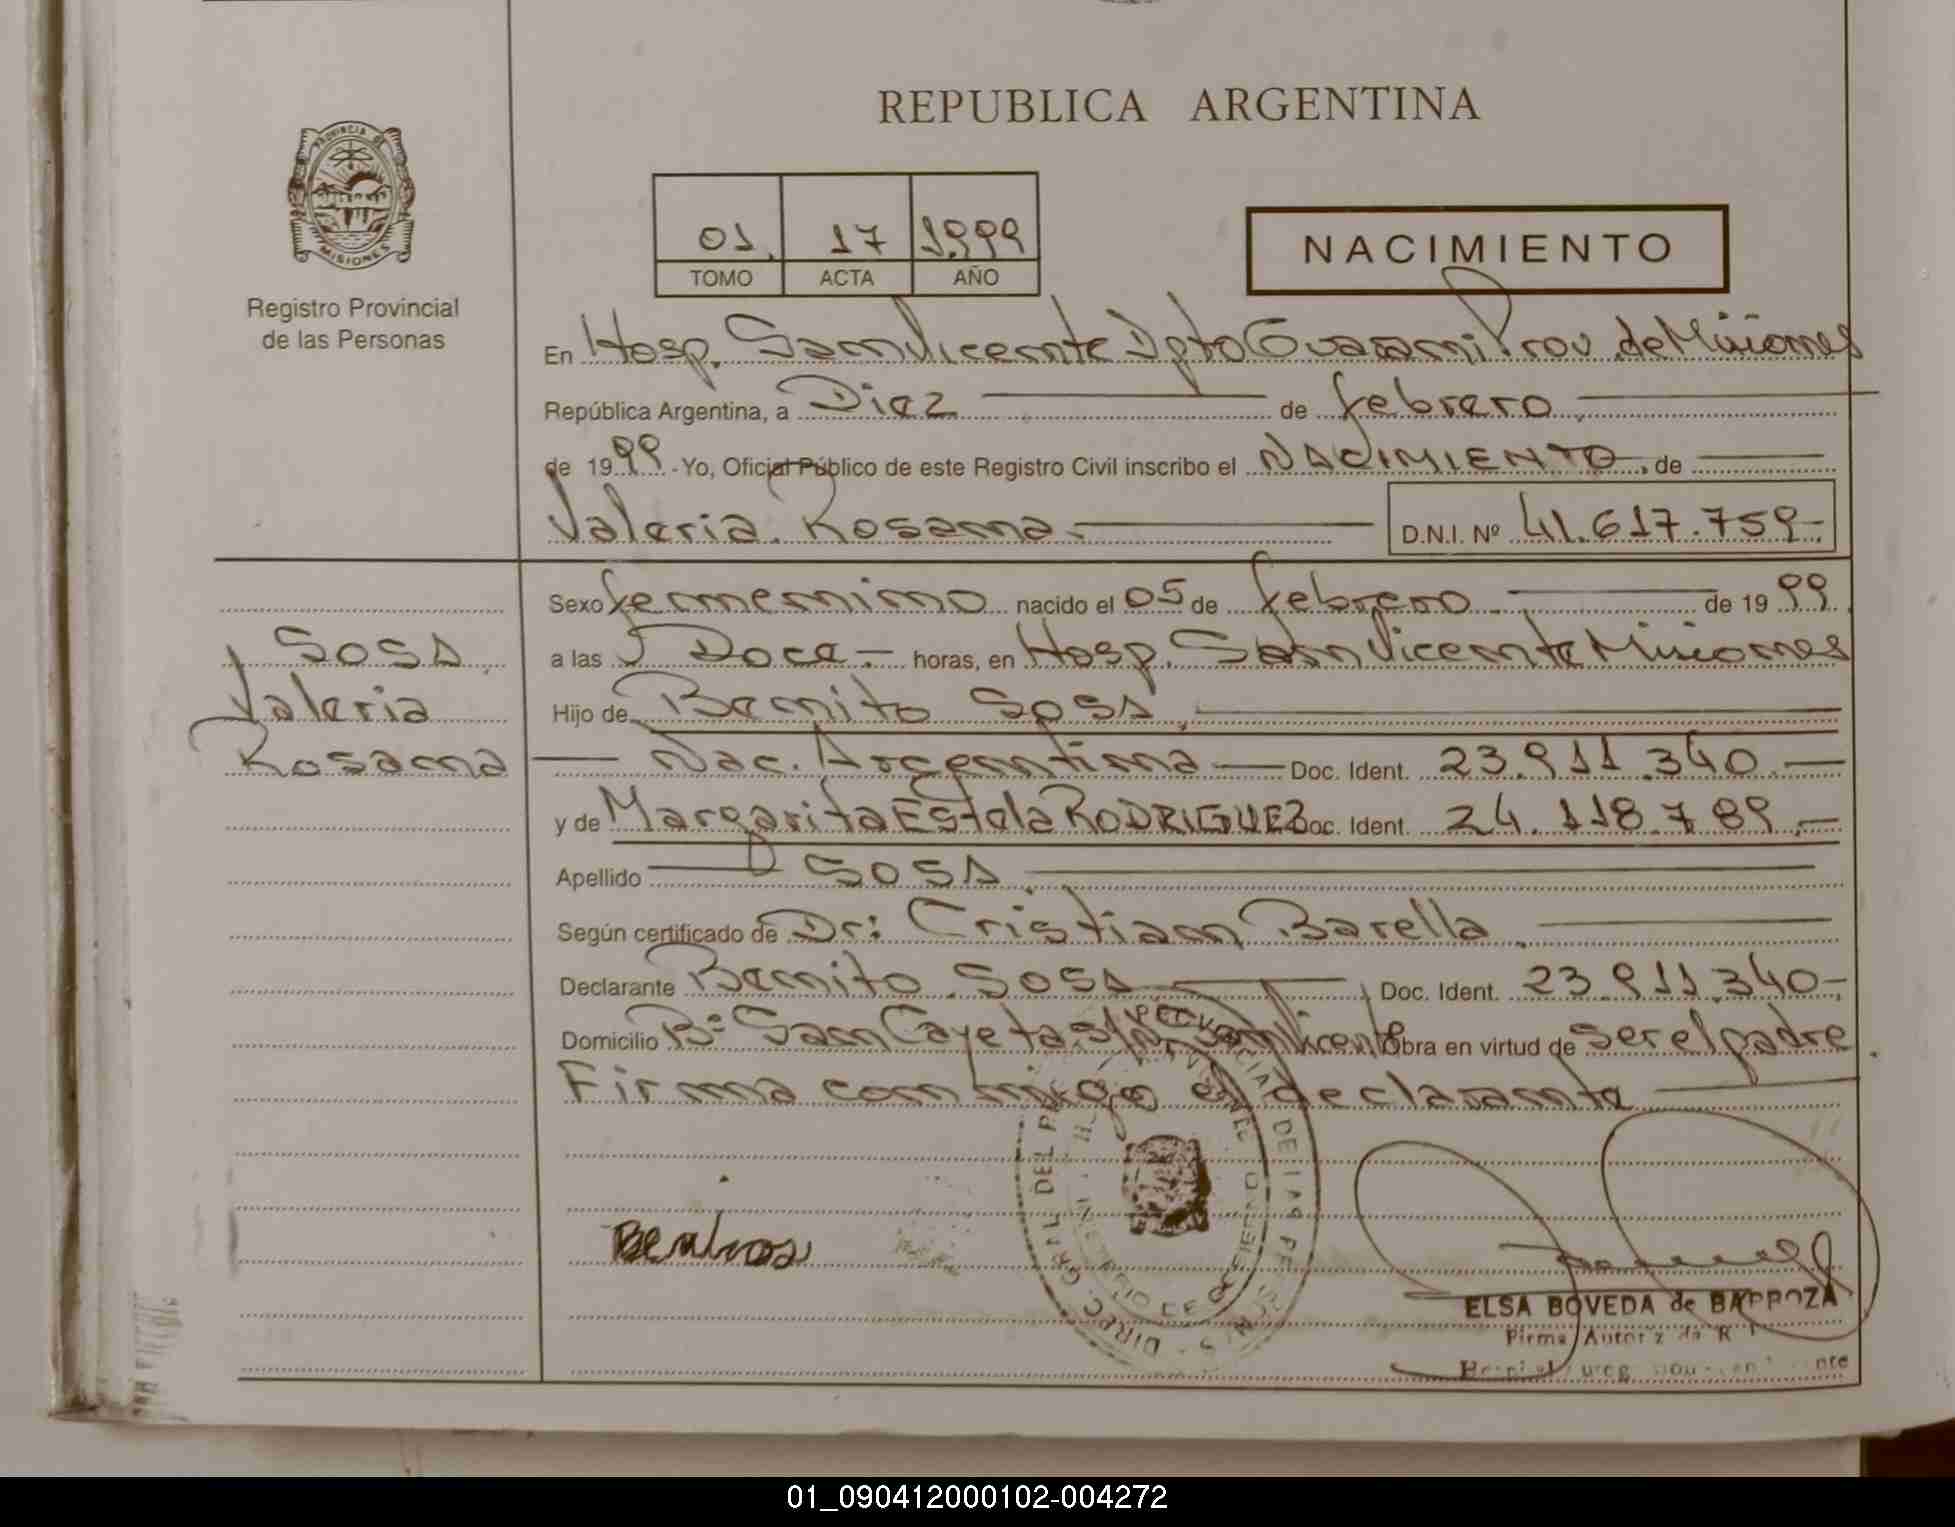 REPUBLICA ARGENTINA
PROVINCIA DE
MISIONES
Registro Provincial
de las Personas
01 17 1999
TOMO ACTA AÑO
NACIMIENTO
En Hosp. San Vicente Dpto Guarani Prov. de Misiones
República Argentina, a Diez de febrero
de 1999 - Yo, Oficial Público de este Registro Civil inscribo el NACIMIENTO, de
Valeria Rosana D.N.I. Nº 41.617.759-
Sexo femenino nacido el 05 de febrero de 1999
SOSA
a las Doce.- horas, en Hosp. San Vicente Misiones
Valeria
Hijo de Benito SOSA
Rosana
Nac. Argentina Doc. Ident. 23.911.340.-
y de Margarita Estela RODRIGUEZ Doc. Ident. 24.118.789.-
Apellido SOSA
Según certificado de Dr: Cristian Barella
Declarante Benito SOSA Doc. Ident. 23.911.340-
Domicilio Bº San Cayeta San Vicente Obra en virtud de ser el padre
Firma conmigo el declarante
DIREC. GRAL DEL DE LAS PE
ELSA BOVEDA de BARROZA
Firma Autoriz
01_090412000102-004272